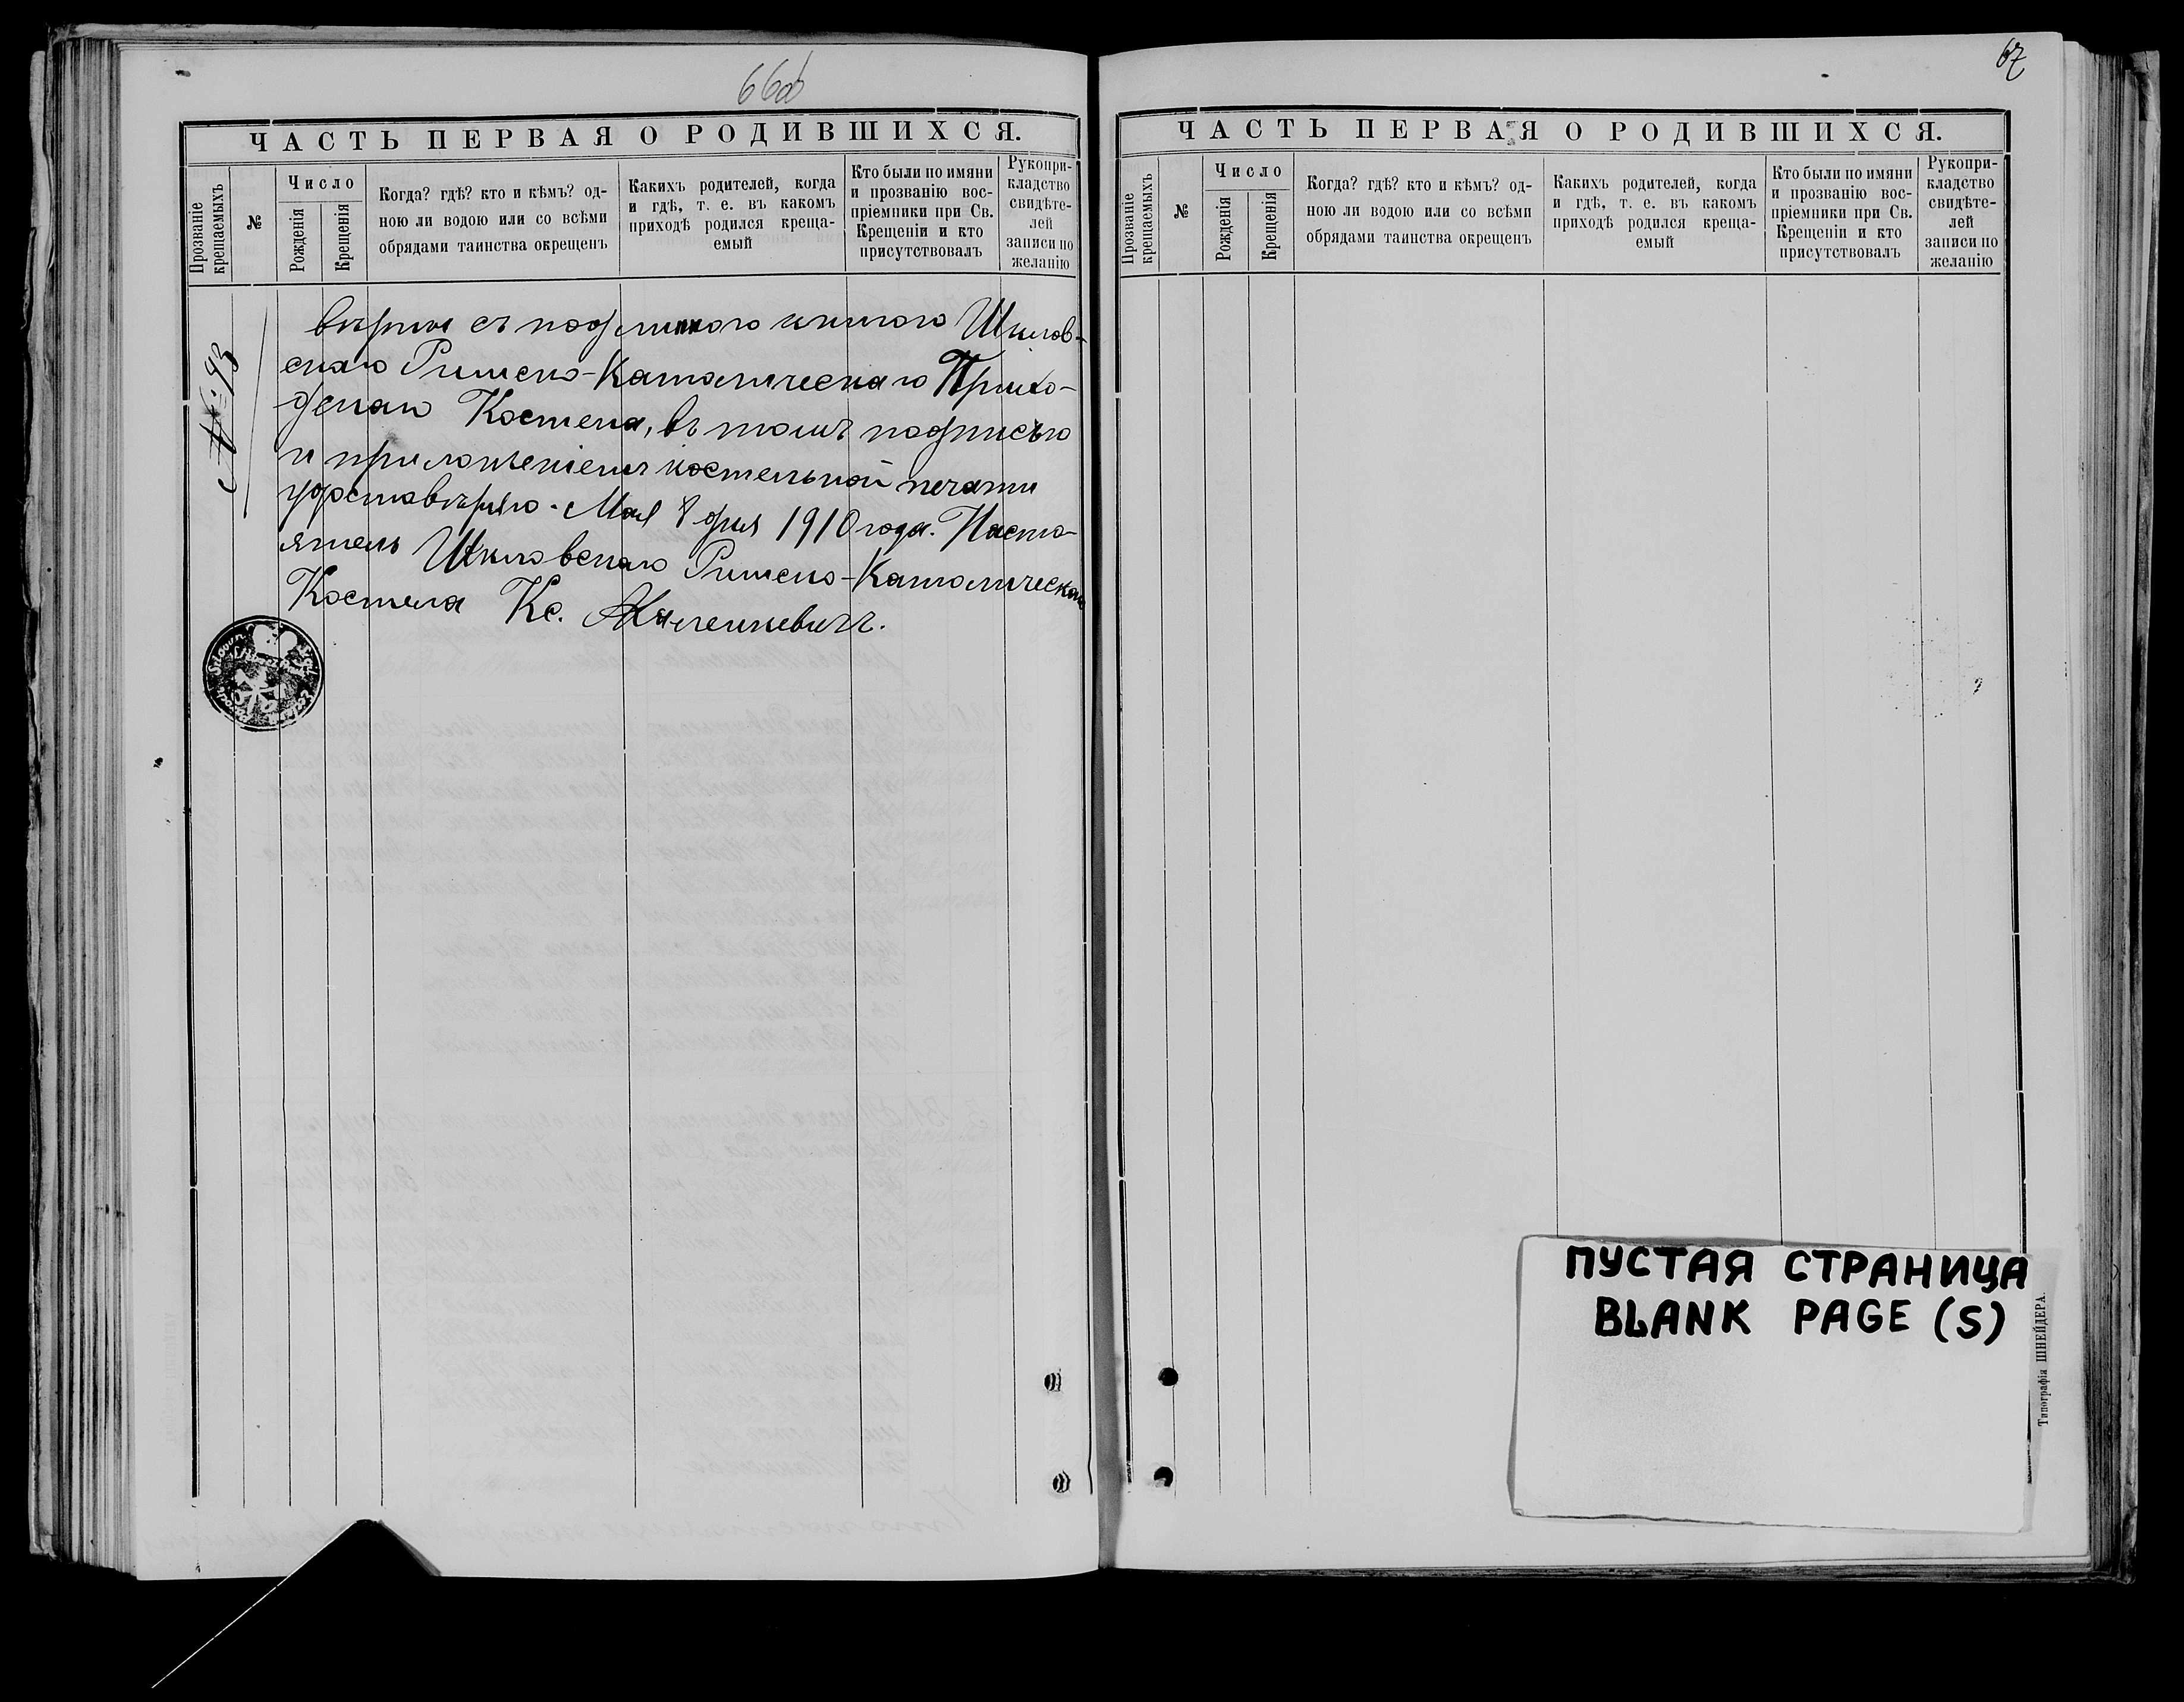 66об
ЧАСТЬ ПЕРВАЯ О РОДИВШИХСЯ.
Прозваніе крещаемыхъ
№
Число
Рожденія
Крещенія
Когда? гдѣ? кто и кѣмъ? од-
ною ли водою или со всѣми
обрядами таинства окрещенъ
Какихъ родителей, когда
и гдѣ, т. е. въ какомъ
приходѣ родился креща-
емый
Кто были по имяни
и прозванію вос-
пріемники при Св.
Крещеніи и кто
присутствовалъ
Рукопри-
кладство
свидѣте-
лей
записи по
желанію
№ 93
Вѣрно съ подлинною книгою Шклов-
скаго Римско-Католическаго Прихо-
дскаго Костела, въ томъ подписью
и приложеніемъ костельной печати
удостовѣряю. Мая 8 дня 1910 года. Насто-
ятель Шкловскаго Римско-Католическаго
Костела Кс.
67
ЧАСТЬ ПЕРВАЯ О РОДИВШИХСЯ.
Прозваніе крещаемыхъ
№
Число
Рожденія
Крещенія
Когда? гдѣ? кто и кѣмъ? од-
ною ли водою или со всѣми
обрядами таинства окрещенъ
Какихъ родителей, когда
и гдѣ, т. е. въ какомъ
приходѣ родился креща-
емый
Кто были по имяни
и прозванію вос-
пріемники при Св.
Крещеніи и кто
присутствовалъ
Рукопри-
кладство
свидѣте-
лей
записи по
желанію
ПУСТАЯ СТРАНИЦА
BLANK PAGE (S)
Типографія ШНЕЙДЕРА.